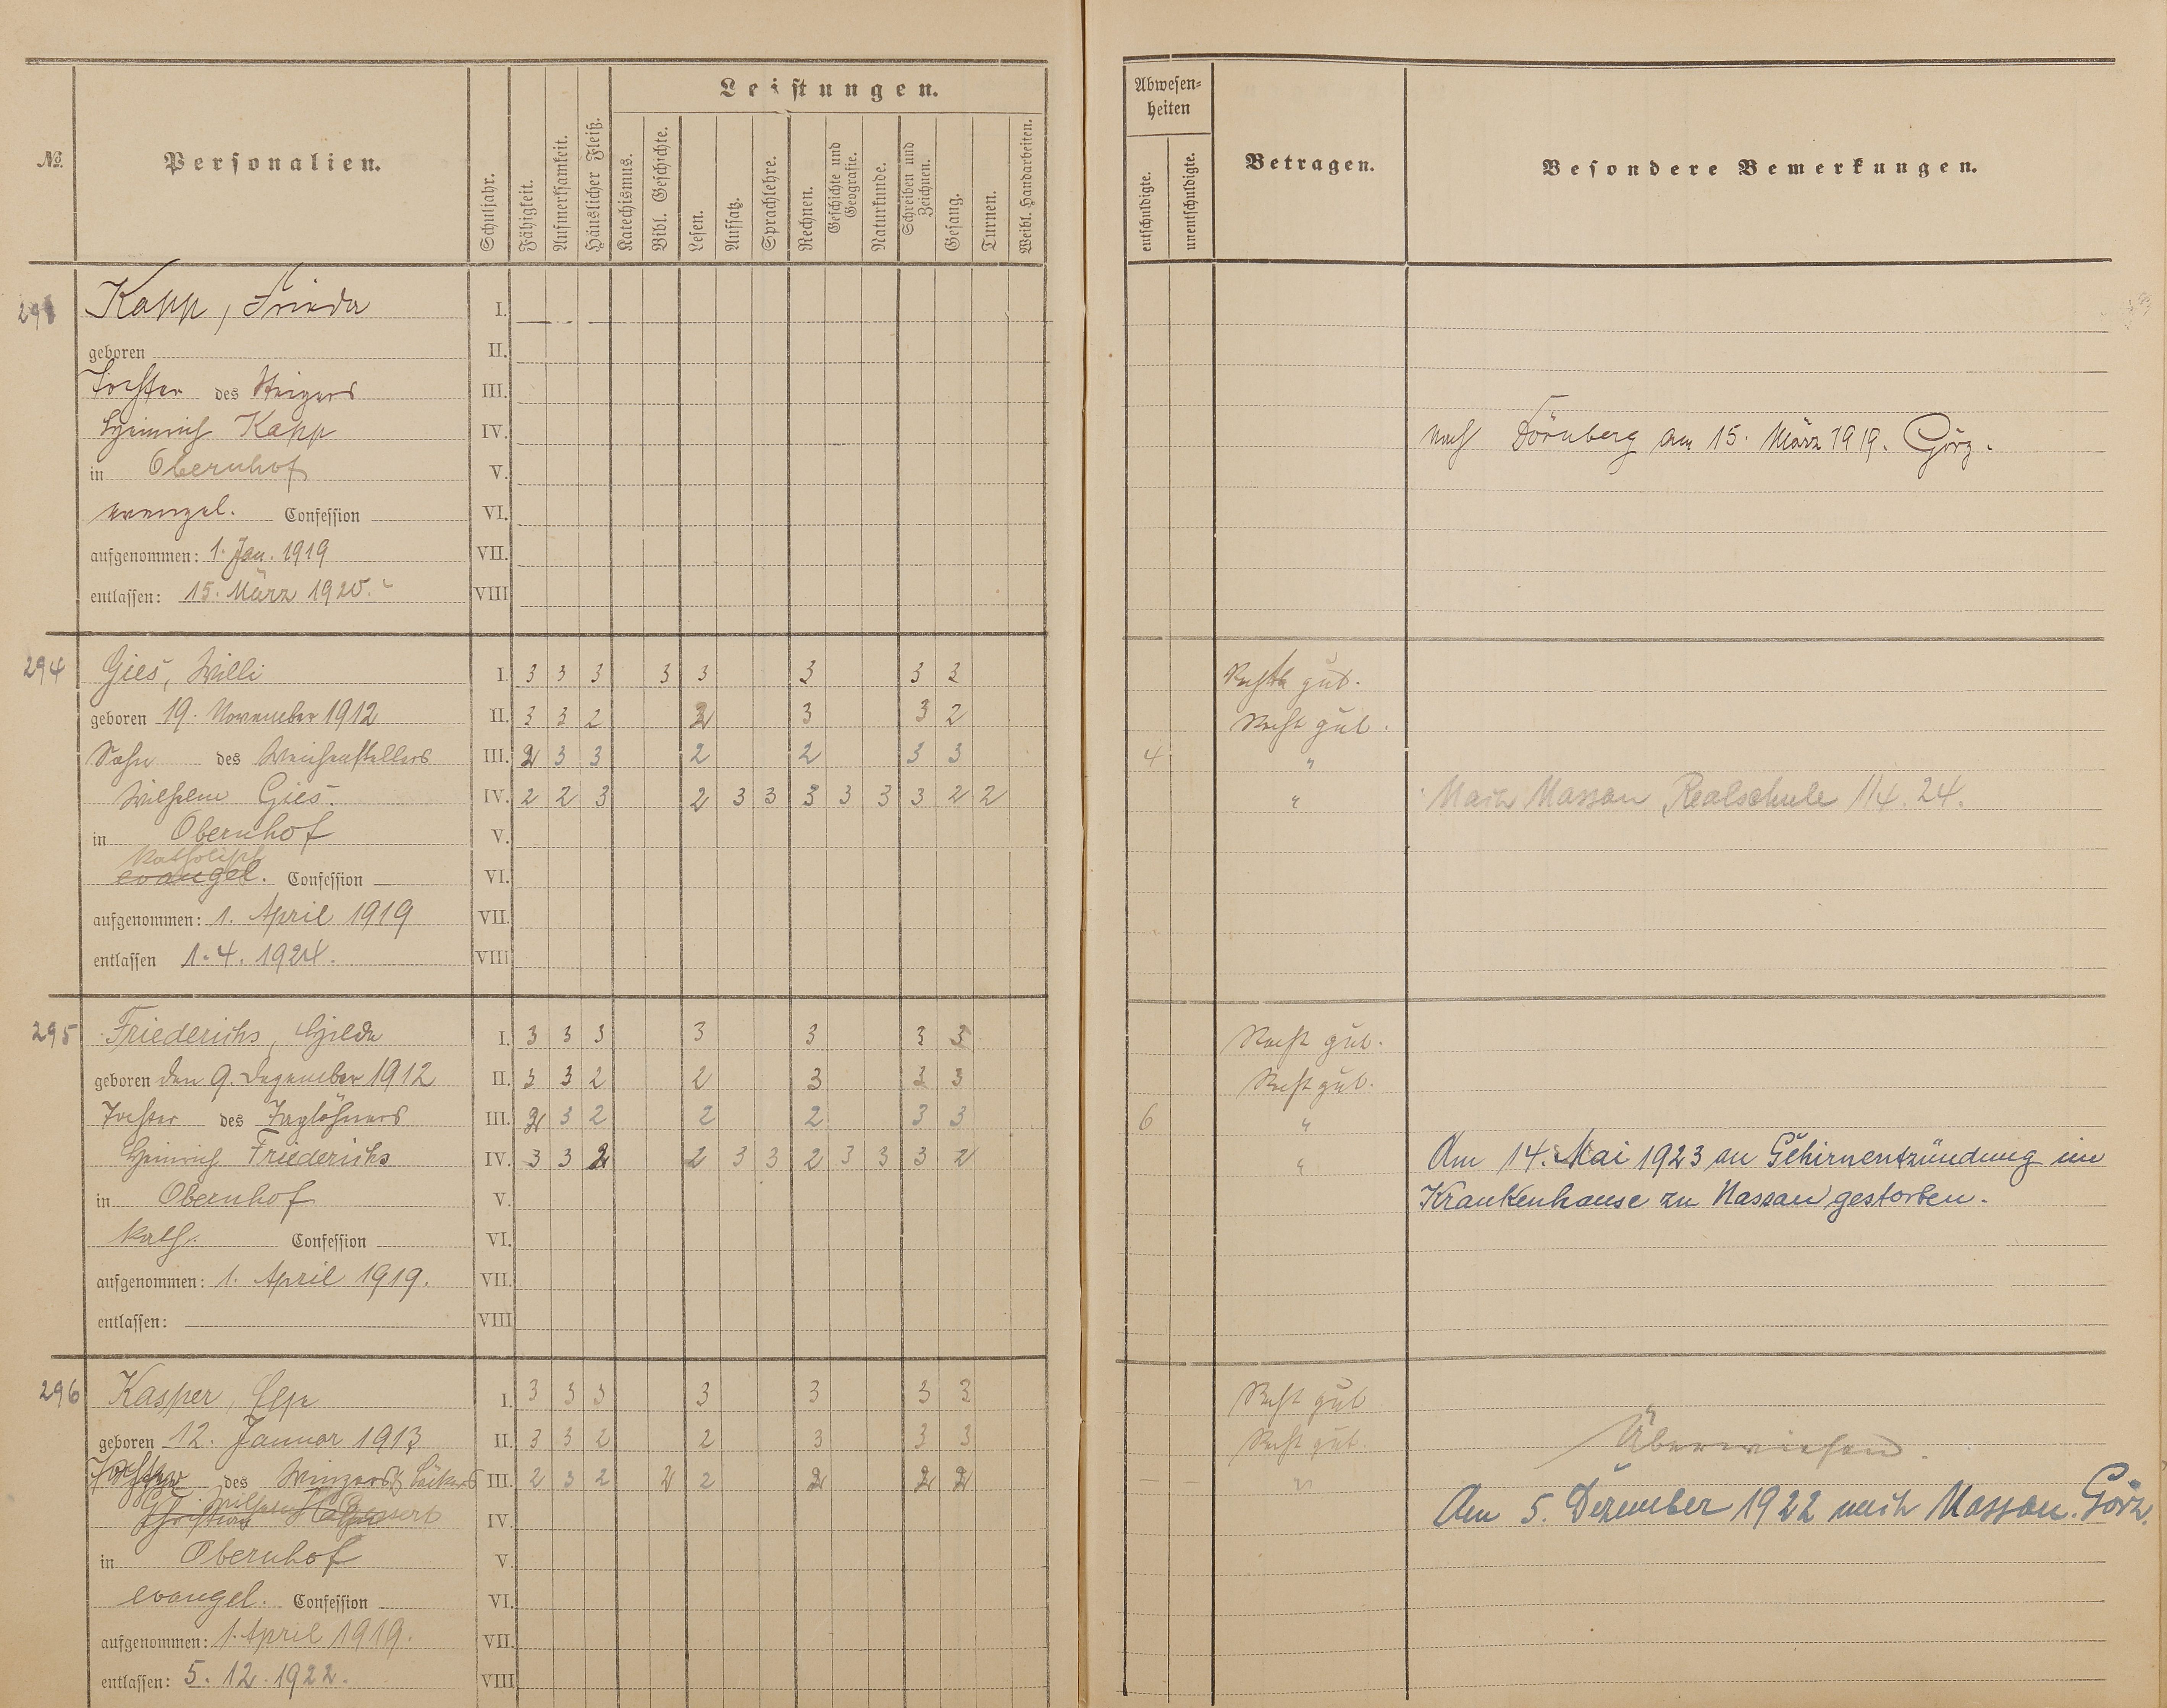 №
Personalien.
Schuljahr.
Fähigkeit.
Aufmerksamkeit.
Häuslicher Fleiß.
Leistungen.
Katechismus.
Bibl. Geschichte.
Lesen.
Aufsatz.
Sprachlehre.
Rechnen.
Geschichte und Geografie.
Naturkunde.
Schreiben und Zeichnen.
Gesang.
Turnen.
Weibl. Handarbeiten.
Abwesen=
heiten
entschuldigte.
unentschuldigte.
Betragen.
Besondere Bemerkungen.
Kapp, Frieda I.
geboren II.
Tochter des Steigers III.
Heinrich Kapp IV. nach Dörnberg am 15. März 1919. Görz.
in Obernhof V.
evangel. Confession VI.
aufgenommen: 1. Jan. 1919 VII.
entlassen: 15. März 1920. VIII
294 Gies, Willi I. 3 3 3 3 3 3 3 3 Recht gut.
geboren 19. November 1912 II. 3 3 2 2 3 3 2 Recht gut.
Sohn des Weichenstellers III. 2 3 3 2 2 3 3 4 "
Wilhelm Gies. IV. 2 2 3 2 3 3 3 3 3 3 2 2 " Nach Nassau, Realschule 1/4. 24.
in Obernhof V.
katholisch
evangel. Confession VI.
aufgenommen: 1. April 1919 VII.
entlassen 1. 4. 1924. VIII
295 Friederichs, Hilda I. 3 3 3 3 3 3 3 Recht gut.
geboren den 9. Dezember 1912 II. 3 3 2 2 3 3 3 Recht gut.
Tochter des Taglöhners III. 2 3 2 2 2 3 3 6 "
Heinrich Friederichs IV. 3 3 2 2 3 3 2 3 3 3 2 " Am 14. Mai 1923 an Gehirnentzündung im
in Obernhof V. Krankenhause zu Nassau gestorben.
kath. Confession VI.
aufgenommen: 1. April 1919. VII.
entlassen: VIII
296 Kasper, Else I. 3 3 3 3 3 3 3 Recht gut
geboren 12. Januar 1913 II. 3 3 2 2 3 3 3 Recht gut. Überwiesen.
Tochter des Winzers III. 2 3 2 2 2 2 2 2 — — "
IV. Am 5. Dezember 1922 nach Nassau. Görz.
in Obernhof V.
evangel. Confession VI.
aufgenommen: 1. April 1919. VII.
entlassen: 5. 12. 1922. VIII